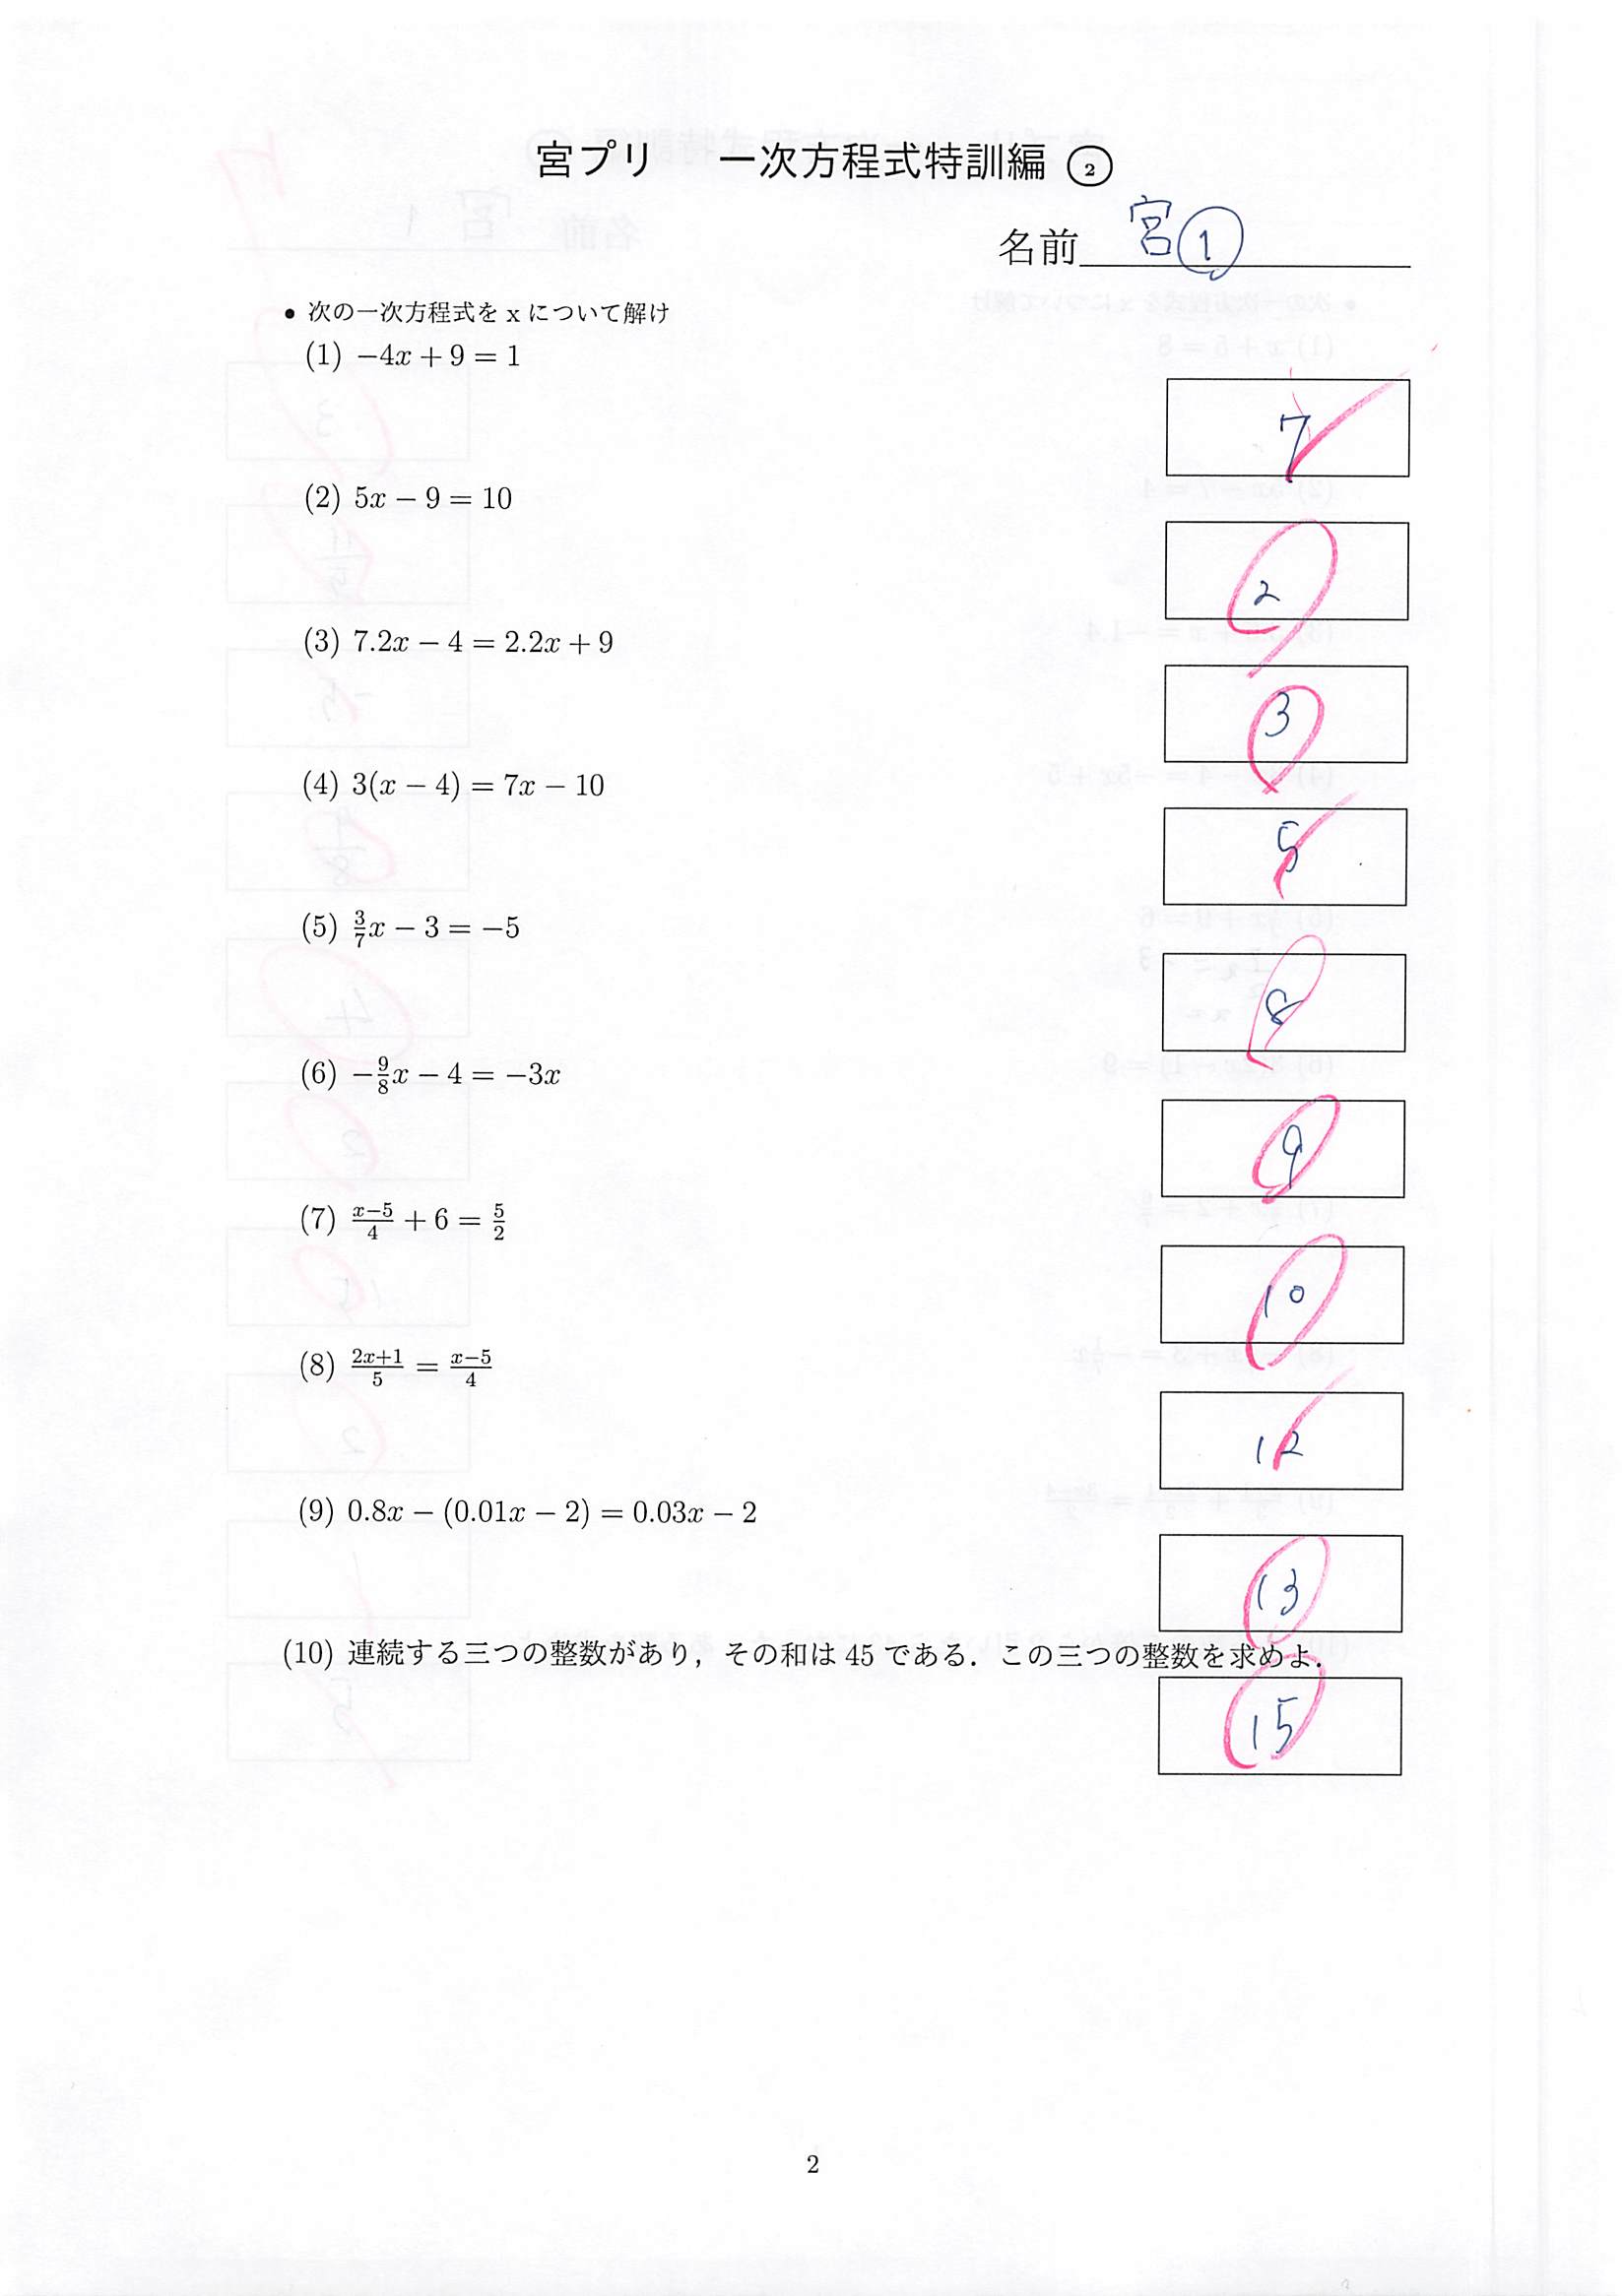 宮プリ 一次方程式特訓編 ②
名前 宮①
• 次の一次方程式を x について解け
(1) −4x + 9 = 1
7
(2) 5x − 9 = 10
2
(3) 7.2x − 4 = 2.2x + 9
3
(4) 3(x − 4) = 7x − 10
5
(5) 3/7x − 3 = −5
8
(6) −9/8x − 4 = −3x
9
(7) x−5/4 + 6 = 5/2
10
(8) 2x+1/5 = x−5/4
12
(9) 0.8x − (0.01x − 2) = 0.03x − 2
13
(10) 連続する三つの整数があり，その和は 45 である．この三つの整数を求めよ．
15
2